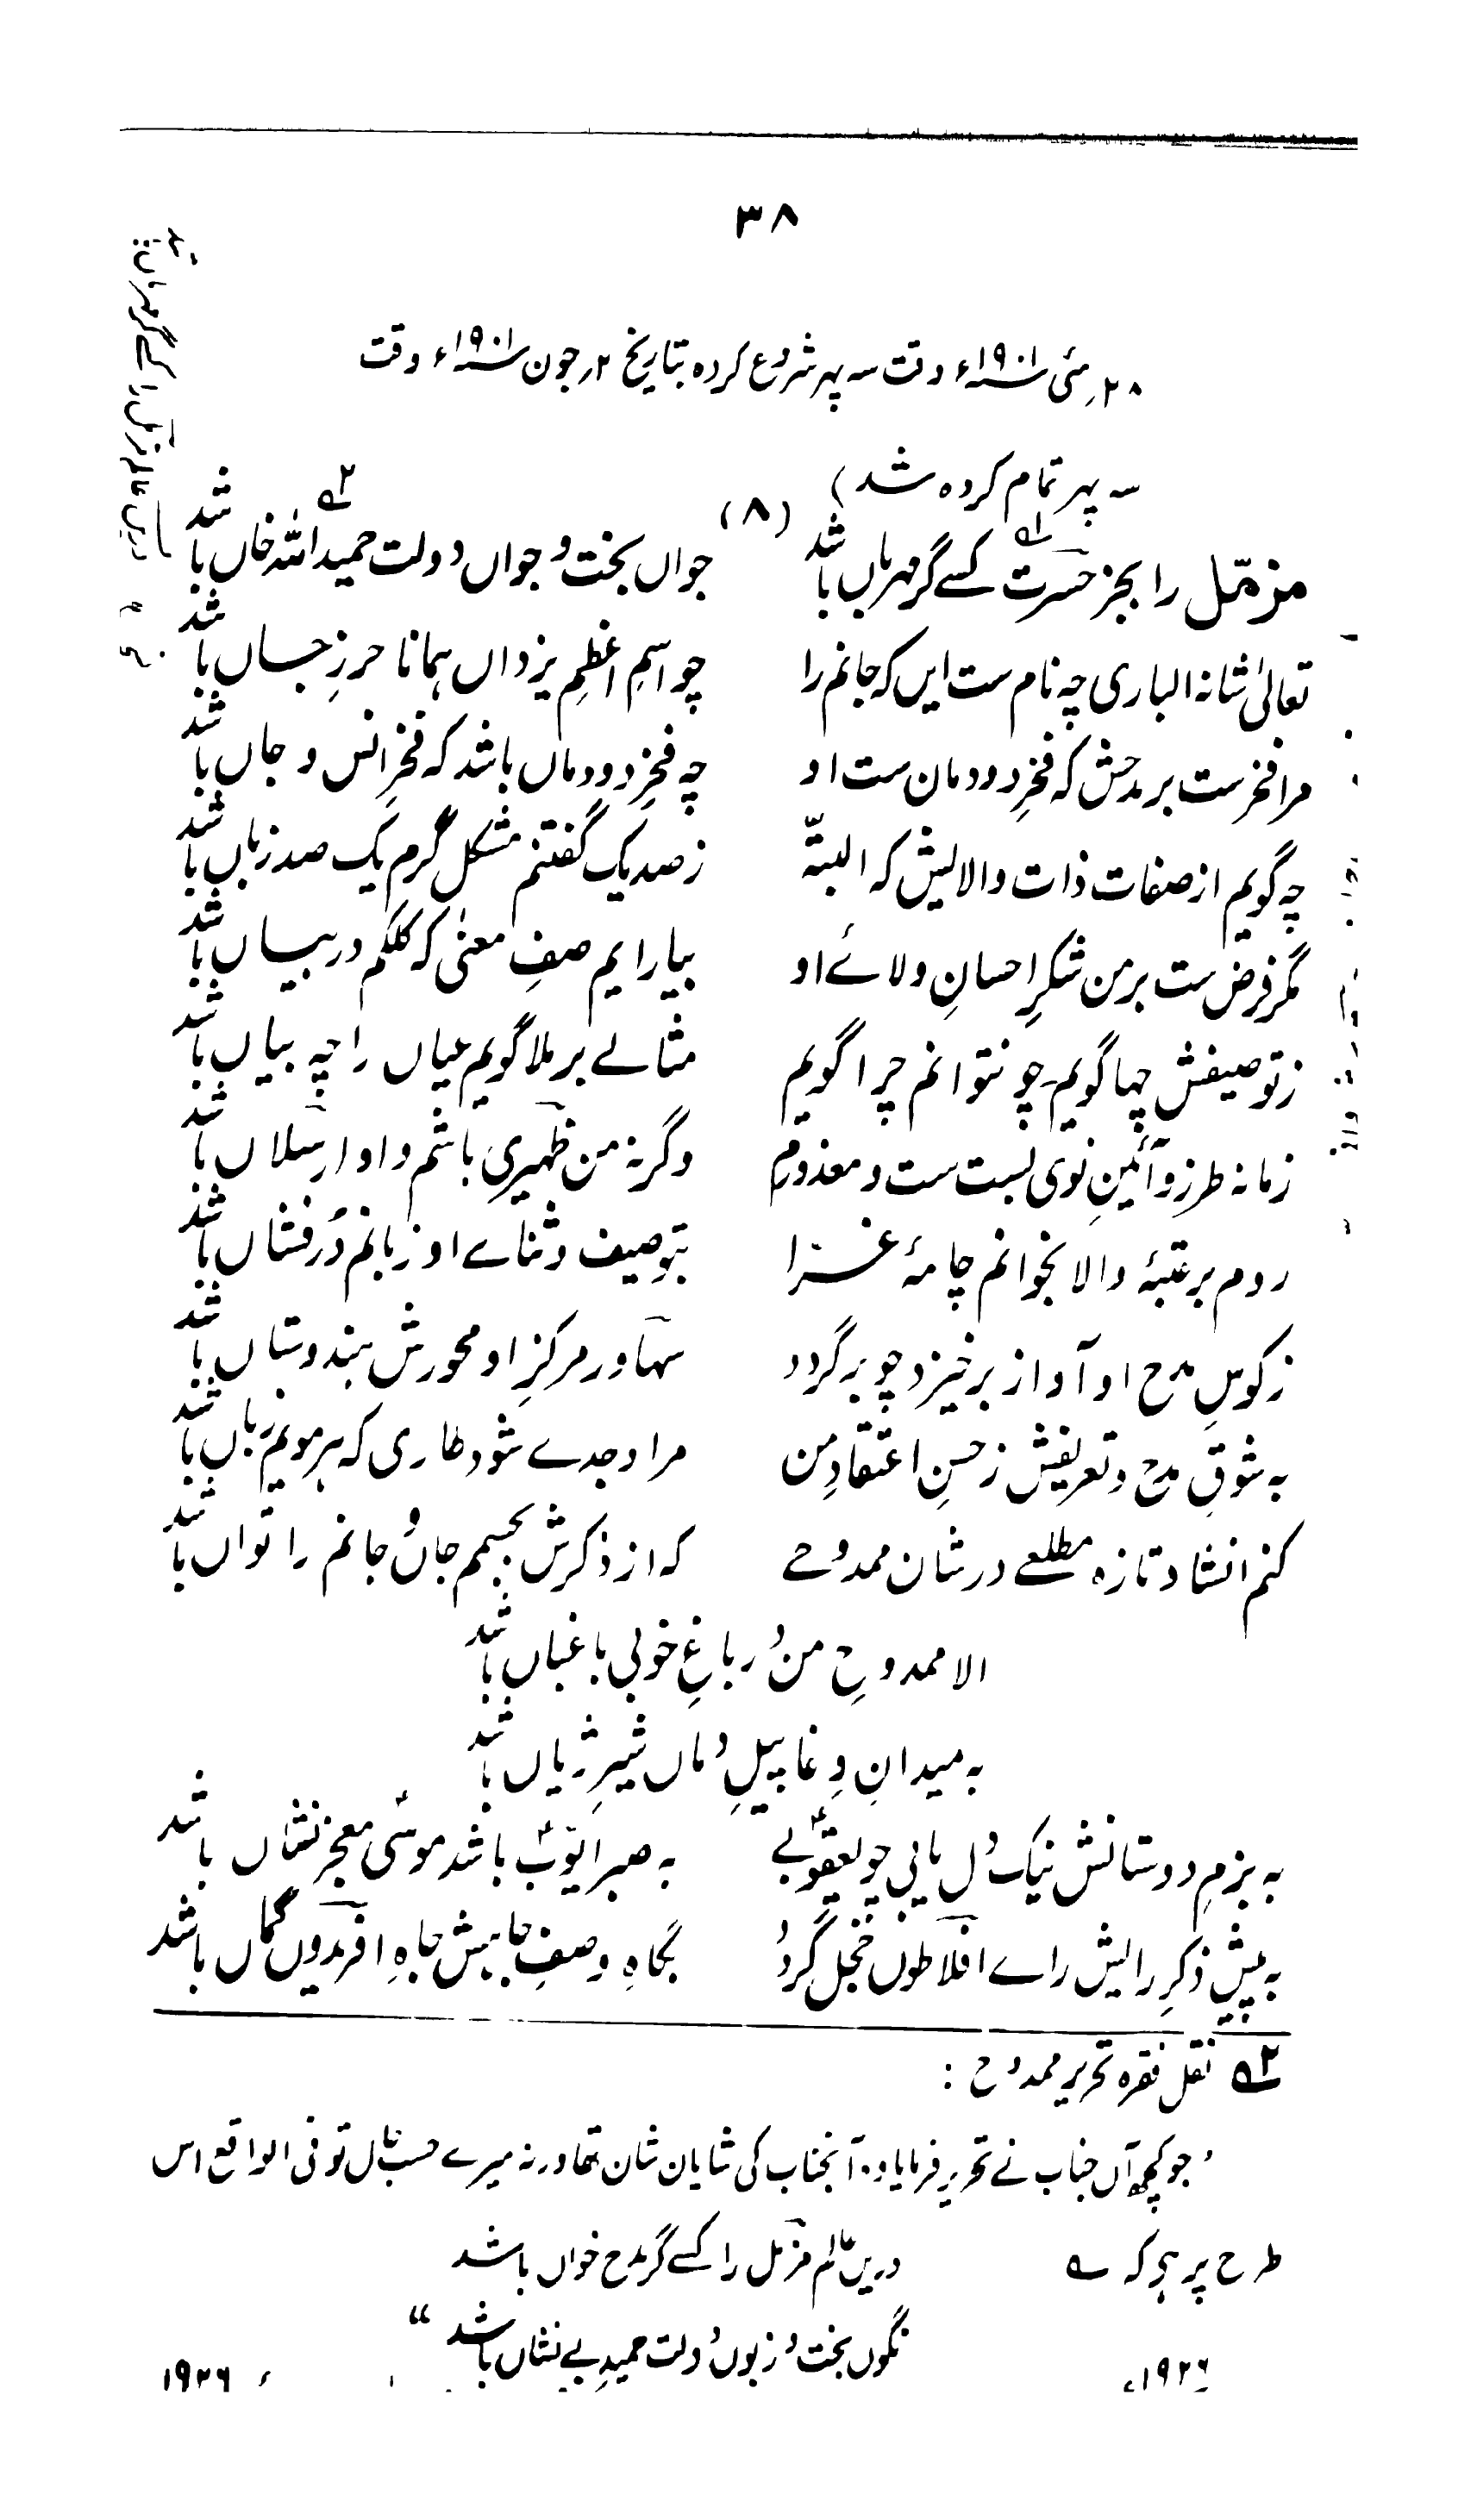 ۳۸
۲۸ مئی سنہ ۱۹۰۱ء وقت سہ پہر شروع کردہ بتاریخ ۲ جون سنہ ۱۹۰۱ء وقت
سہ پہر تمام کردہ شد)
(۸)
مزمّل را بجز حسرت کسے گر مہرباں باشد جواں بخت و جواں دولت حمید اللہ خاں باشد
تعالیٰ شانہ الباری چہ نام ست ایں کہ جانم را چو اسمِ اعظمِ یزداں ہمانا حرزِ جاں باشد
مرا فخرست بر مدحش کہ فخرِ دودمان ست او چہ فخرِ دودماں باشد کہ فخرِ انس و جاں باشد
چہ گویم از صفات ذات والایش کہ البتّہ ز صد یک گفتنم مشکل گرم یک صد زباں باشد
مگر فرض ست بر من شکرِ احسانِ ولائے او بیارایم صفِ معنیٰ کہ کلکم در بیاں باشد
ز توصیفش چہا گویم۔ چو نتوانم چرا گویم مثالے برملا گویم عیاں را چہ بیاں باشد
زمانہ طرز و آئینِ نوی بست ست و معذورم وگرنہ من ظہیری باشم و او ارسلاں باشد
روم بر عتبۂ والا بخوانم چامۂ غرّا بتوصیف و ثناے او زبانم دُرفشاں باشد
ز کوسِ مدح او آواز برخیزد چو بر گردد سہاور مرکزِ او محورش ہندوستاں باشد
بہ شوقِ مدح و تعریفش ز حسنِ اعتقادِ من مرا وجدے شود طاری کہ ہر مویم زباں باشد
کنم انشاد تازہ مطلعے در شان ممدوحے کہ از ذکرش بجسمم جان و جانم را تواں باشد
الا ممدوحِ من در باغِ خوبی باغباں باشد
بہ میدانِ وغا پیلِ دماں شیرِ ژیاں باشد
بہ بزمِ دوستانش نیک دل یابی چو یعقوبؑے بہ صبر ایّوبؑ باشد موسیؑ معجز نشاں باشد
بہ پیشِ ذکرِ رایش راے افلاطوں خجل گردد بگاہِ وصفِ جاہش جاہِ افریدوں گماں باشد
۲؎ نقل فقرہ تحریر ممدوح :
"جو کچھ آں جناب نے تحریر فرمایا وہ آنجناب کی شایان شان تھا ورنہ میرے حسب حال تو فی الواقع اس
طرح پر ہی کہ ؎ دریں عالم مزمل را کسے گر مدح خواں باشد
نگوں بخت و زبوں دولت حمیدِ بے نشاں باشد"
۱۹۲۶ء ۱۹۲۶ء